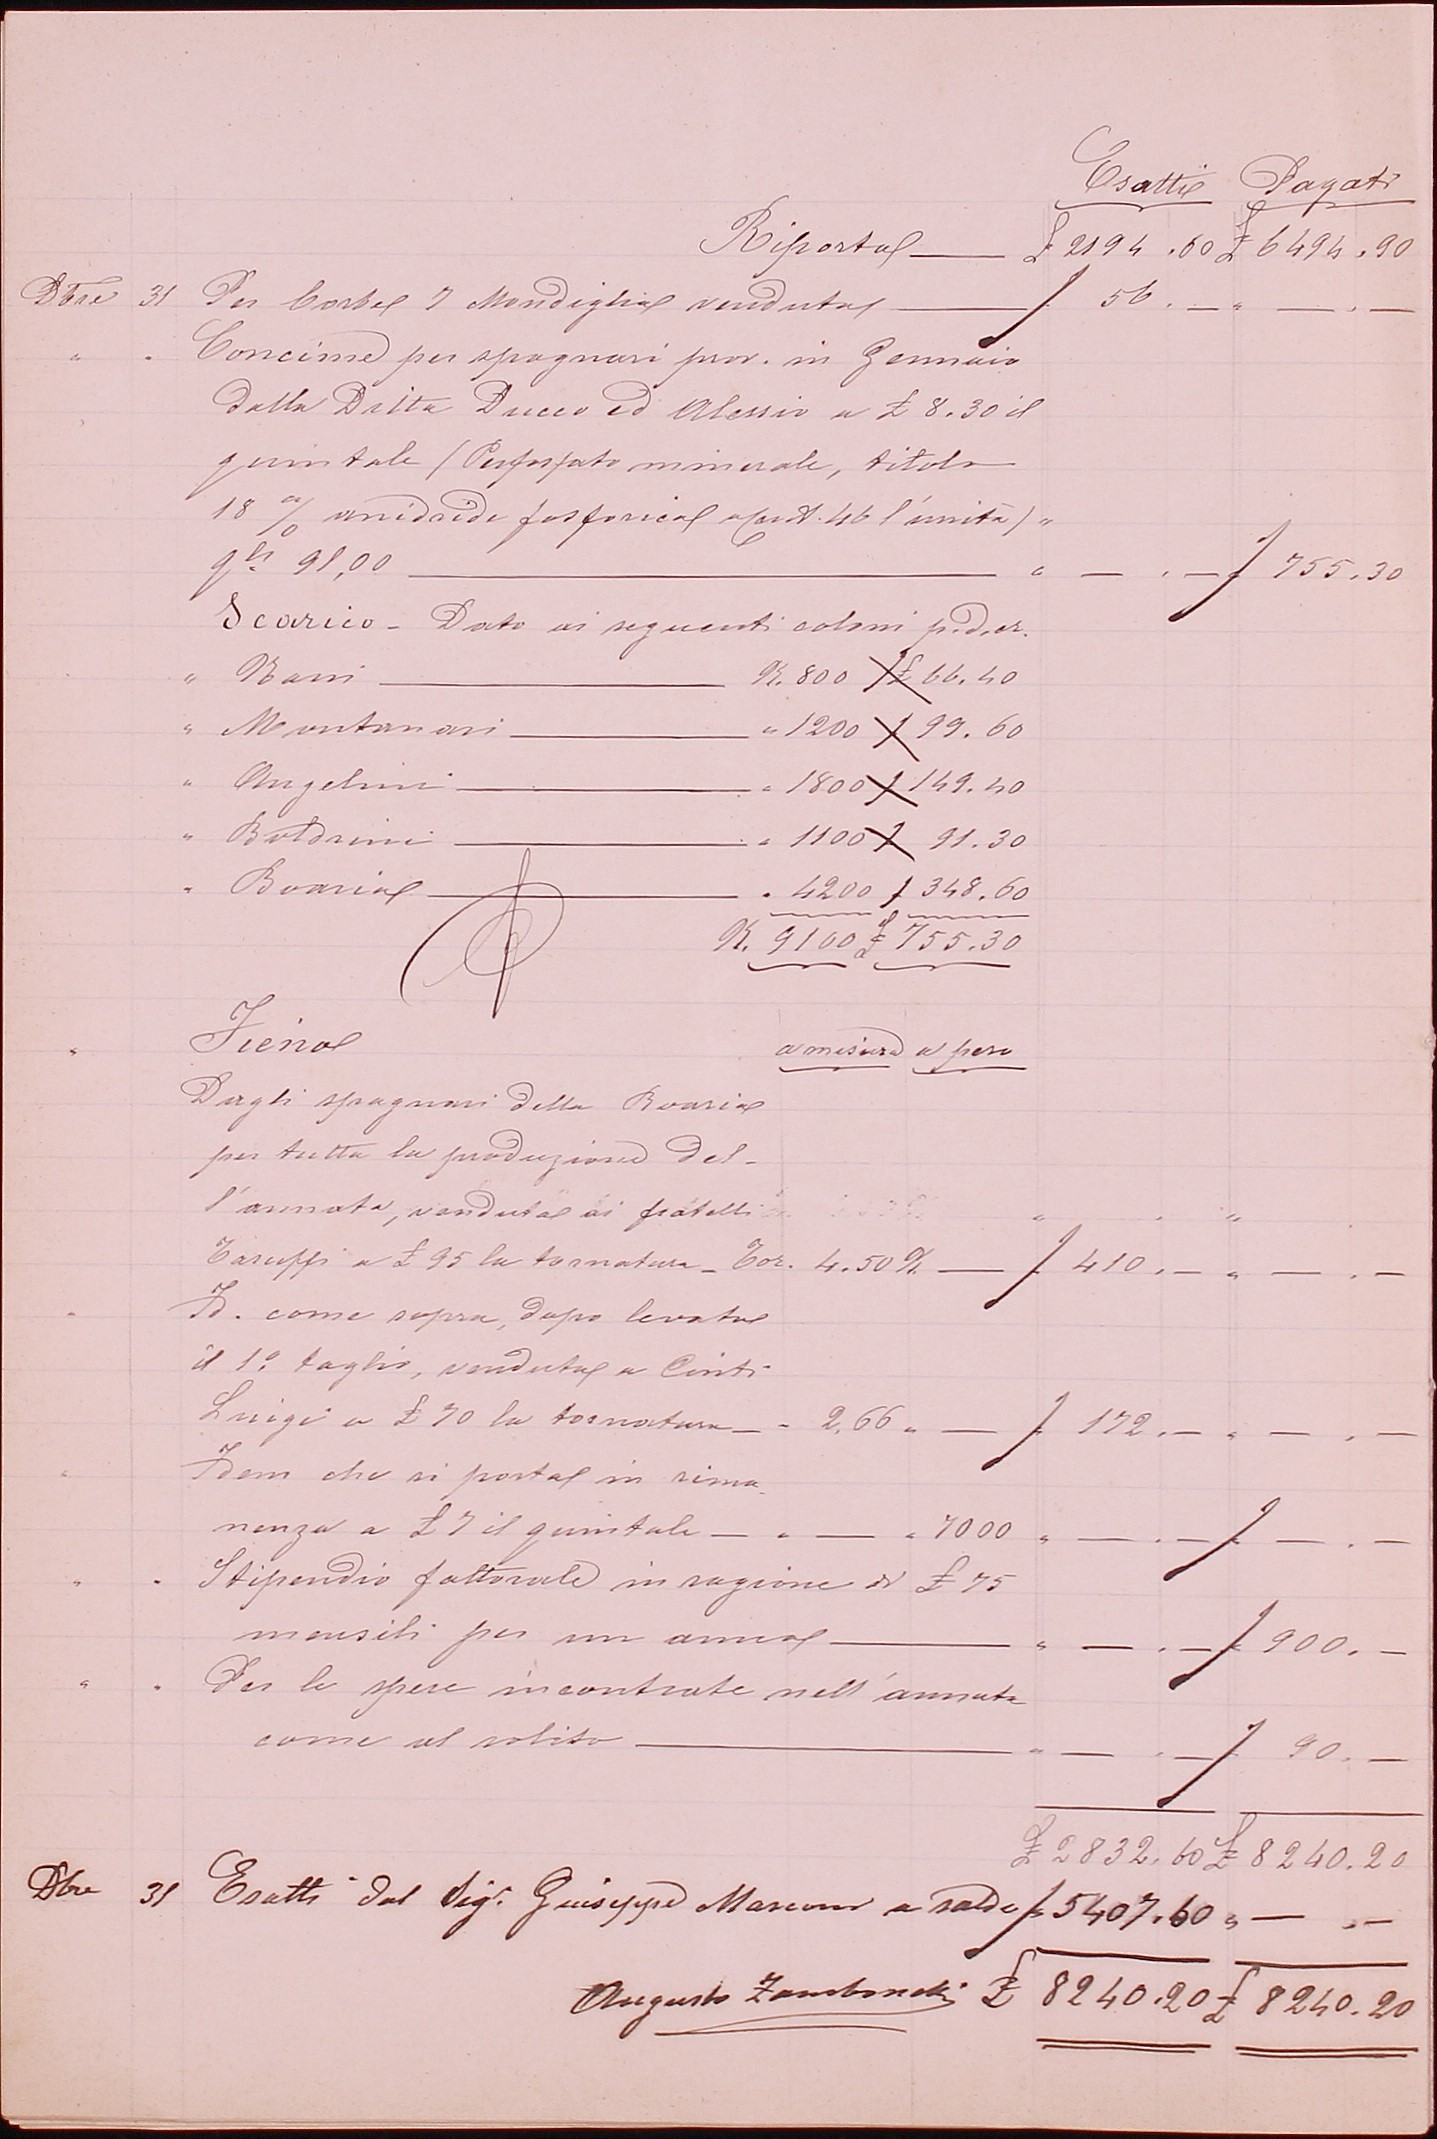 Esatti Pagati
Riporto — £ 2194.60 £ 6494.90
Dbre 31 Per Corbe 7 Mondiglia venduta — " 56.— " — . —
" " Concime per spagnari prov. in Gennaio
dalla Ditta Ducco ed Alessio a £ 8.30 il
quintale (Perfosfato minerale, titolo
18 % anidride fosforica a cent. 46 l'unità) "
qli 91,00 — " — . — " 755.30
Scarico - Dato ai seguenti coloni p.d.er.
" Nanni — K. 800 £ 66.40
" Montanari — " 1200 " 99.60
" Angelini — " 1800 " 149.40
" Boldrini — " 1100 " 91.30
" Boaria — " 4200 " 348.60
K. 9100 £ 755.30
" Fieno a misura a peso
Dagli spagnari della Boaria
per tutta la produzione del-
l'annata, venduta ai fratelli " "
Taruffi a £ 95 la tornatura - Tor. 4.50 % — " 410.— " — . —
" Id. come sopra, dopo levato
il 1° taglio, venduta a Cinti
Luigi a £ 70 la tornatura — " 2.66 " — " 172.— " — . —
" Idem che si porta in rima-
nenza a £ 7 il quintale — " — " 7000 " — . — " — . —
" " Stipendio fattorale in ragione di £ 75
mensili per un anno — " — . — " 900.—
" " Per le spese incontrate nell'annata
come al solito — " — . — " 90.—
£ 2832.60 £ 8240.20
Dbre 31 Esatti dal Sigr. Giuseppe Marconi a saldo " 5407.60 " — . —
Augusto Zambonelli £ 8240.20 £ 8240.20